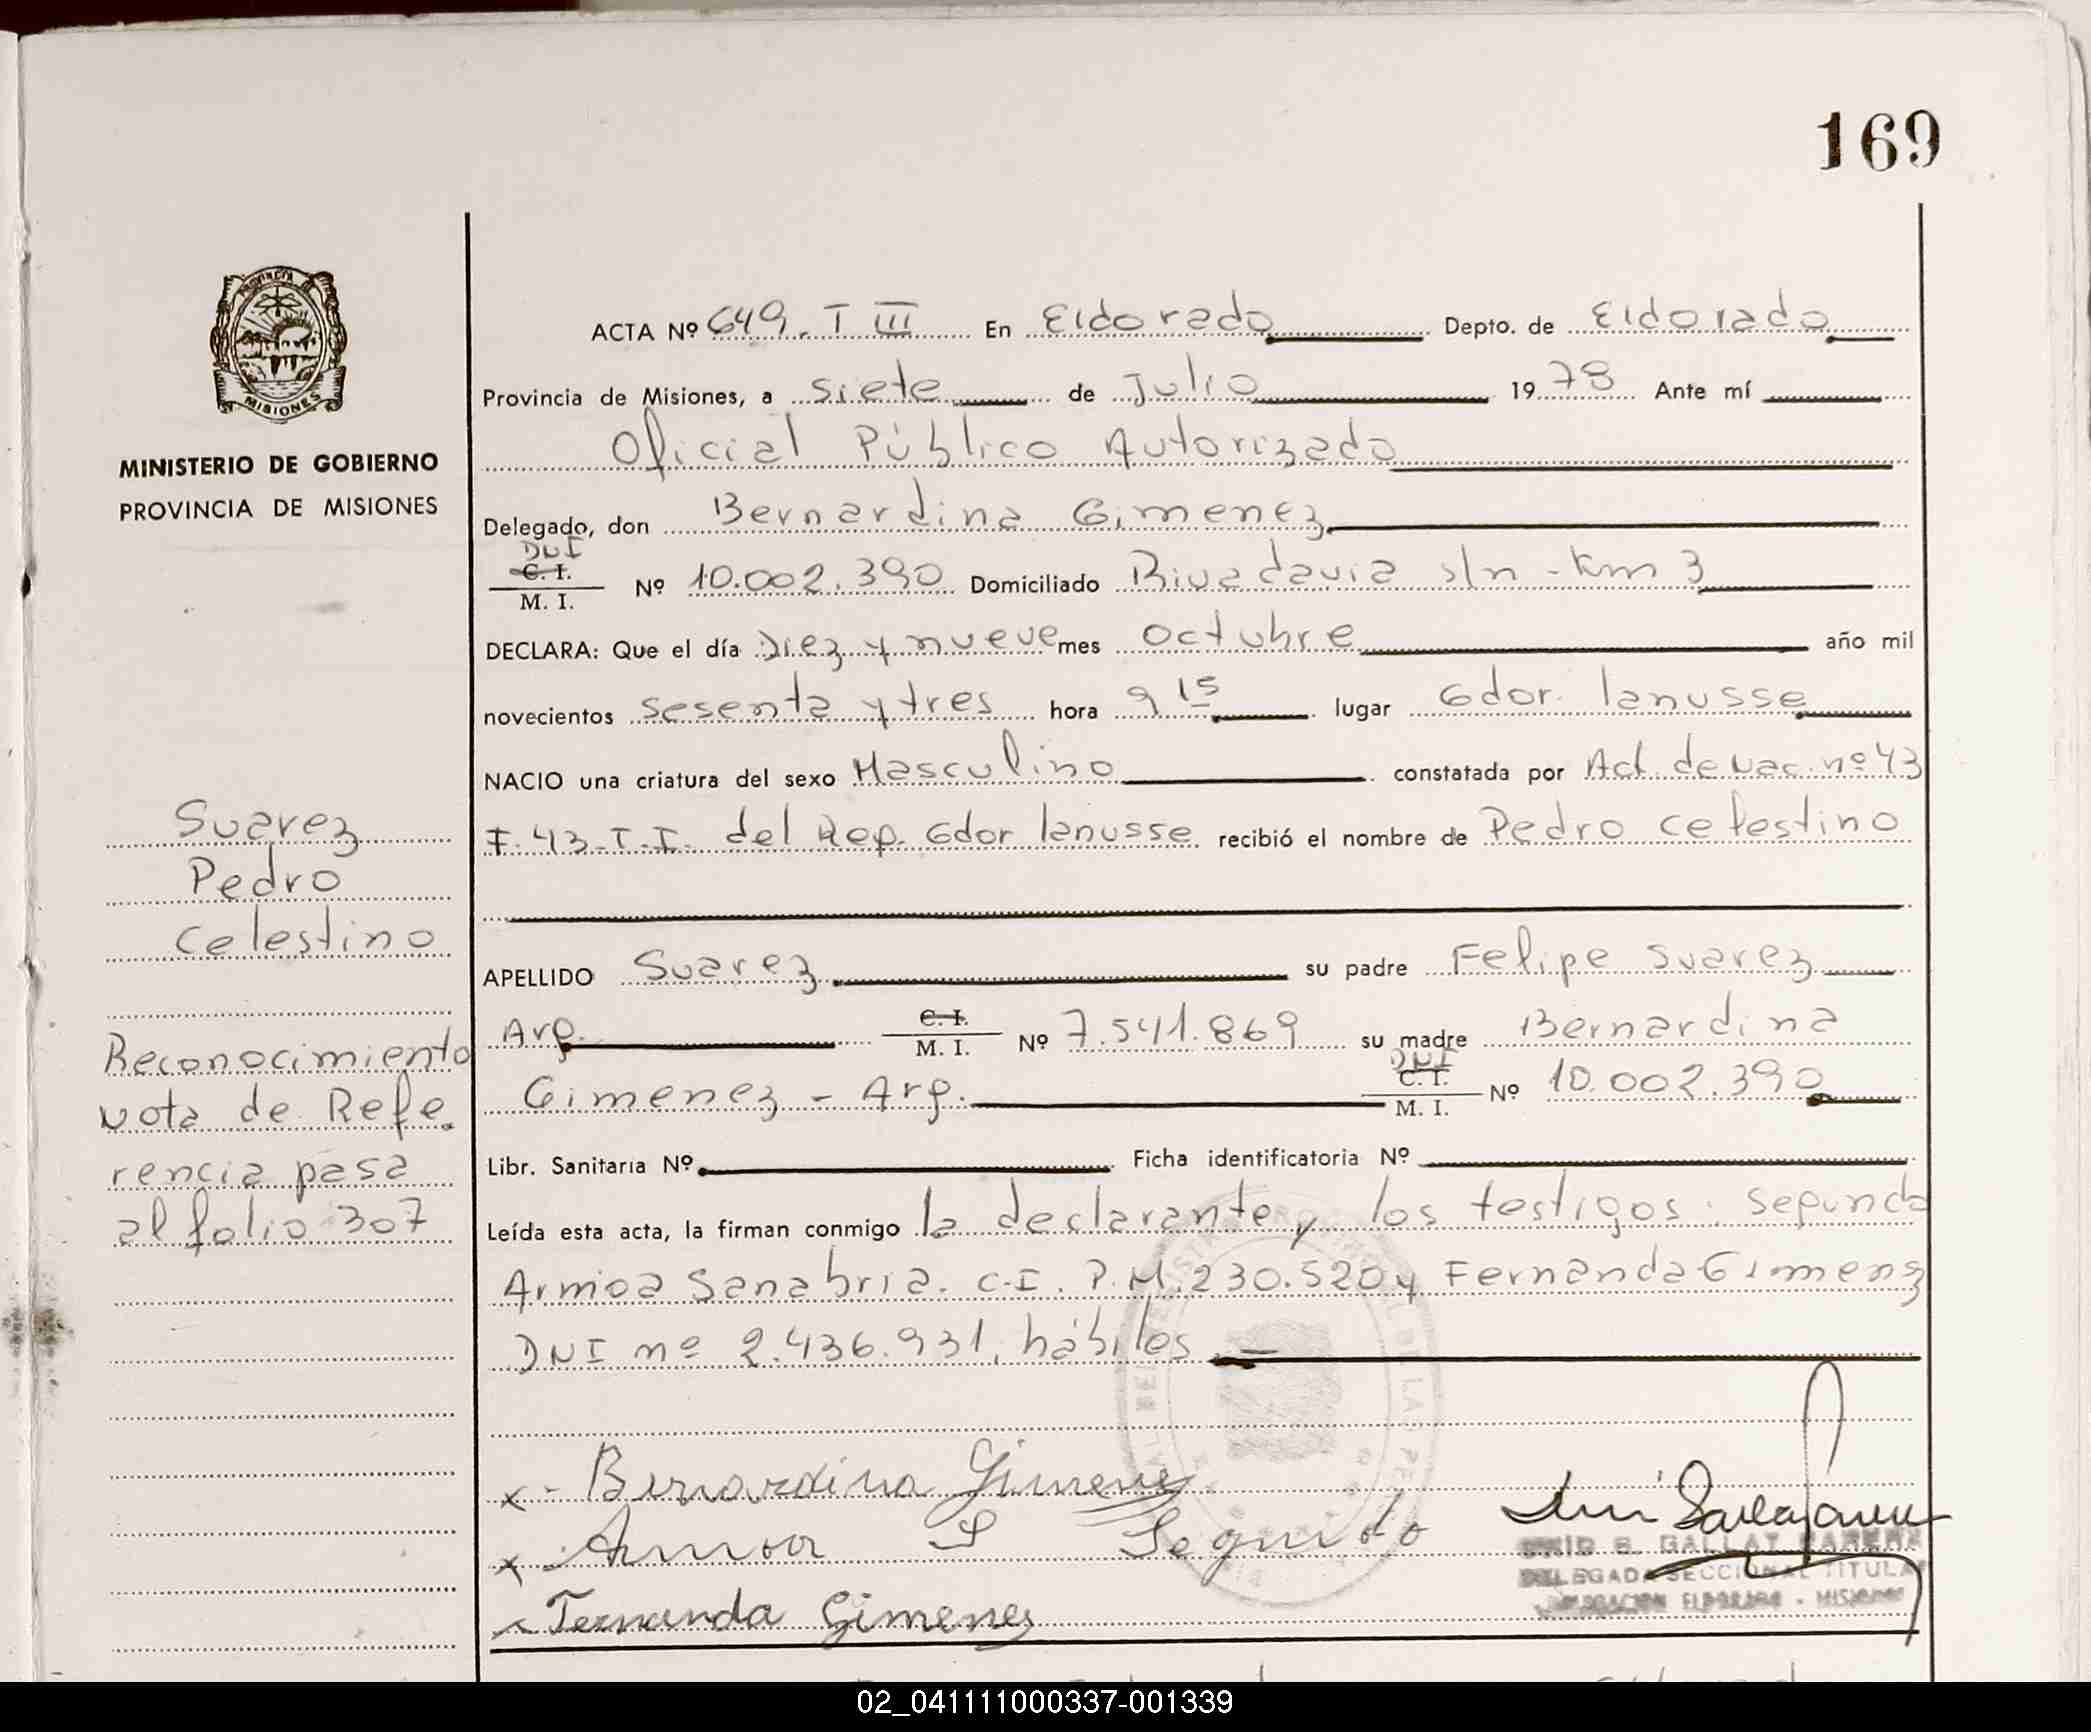 169
PROVINCIA
MISIONES
MINISTERIO DE GOBIERNO
PROVINCIA DE MISIONES
Suarez
Pedro
Celestino
Reconocimiento
Nota de Refe.
rencia pasa
al folio 307
ACTA Nº 649. T III En Eldorado Depto. de Eldorado
Provincia de Misiones, a siete de Julio 1978 Ante mí
Oficial Público Autorizado
Delegado, don Bernardina Gimenez
DNI
C. I.
M. I. Nº 10.002.390 Domiciliado Rivadavia s/n - Km 3
DECLARA: Que el día Diez y nueve mes octubre año mil
novecientos sesenta y tres hora 9 15 lugar Gdor. lanusse
NACIO una criatura del sexo Masculino constatada por Act. de Nac. nº 43
F. 43. T. I. del Rep. Gdor lanusse recibió el nombre de Pedro Celestino
APELLIDO Suarez su padre Felipe Suarez
Arg. C. I.
M. I. Nº 7.541.869 su madre Bernardina
Gimenez - Arg. DNI
C. I.
M. I. Nº 10.002.390
Libr. Sanitaria Nº Ficha identificatoria Nº
Leída esta acta, la firman conmigo la declarante y los testigos: Segundo
Armoa Sanabria. C.I. P.M. 230.520 y Fernanda Gimenez
DNI nº 2.436.931, hábiles. -
x - Bernardina Gimenez
x - Armoa S Segundo
x - Fernanda Gimenez
GALLAT
DELEGADA SECCIONAL TITULAR
DELEGACION ELDORADO - MISIONES
02_041111000337-001339